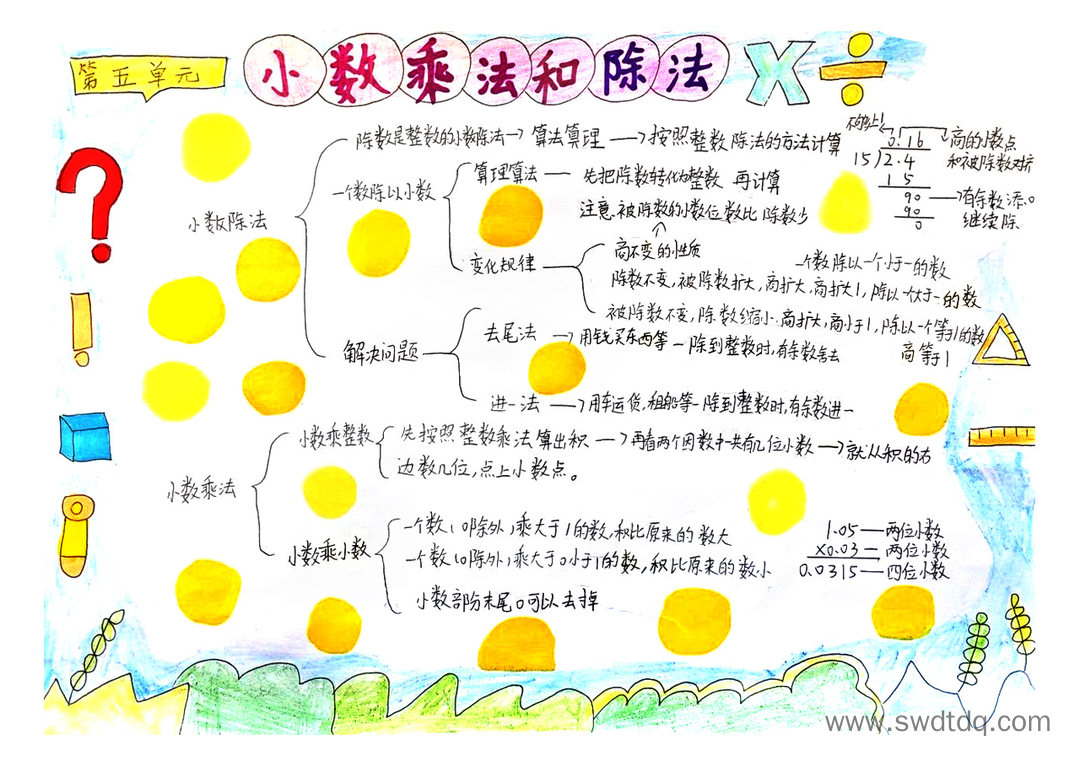 第五单元
小数乘法和除法
X÷
小数除法
除数是整数的小数除法→算法算理→按照整数除法的方法计算
商的小数点
和被除数对齐
0.16
15)2.4
15
90
90
0
有余数添0
继续除
一个数除以小数
算理算法—先把除数转化为整数 再计算
注意.被除数的小数位数比除数少
变化规律
商不变的性质
一个数除以一个小于一的数
除数不变,被除数扩大,商扩大,商扩大1,除以一个大于一的数
被除数不变,除数缩小.商扩大,商小于1,除以一个等于1的数
商等于1
解决问题
去尾法→用钱买东西等—除到整数时,有余数舍去
进一法→用车运货,租船等—除到整数时,有余数进一
小数乘法
小数乘整数
先按照整数乘法算出积→再看两个因数中一共有几位小数→就从积的右
边数几位,点上小数点。
小数乘小数
一个数(0除外)乘大于1的数,积比原来的数大
一个数(0除外)乘大于0小于1的数,积比原来的数小
小数部分末尾0可以去掉
1.05—两位小数
X0.03—两位小数
0.0315—四位小数
www.swdtdq.com